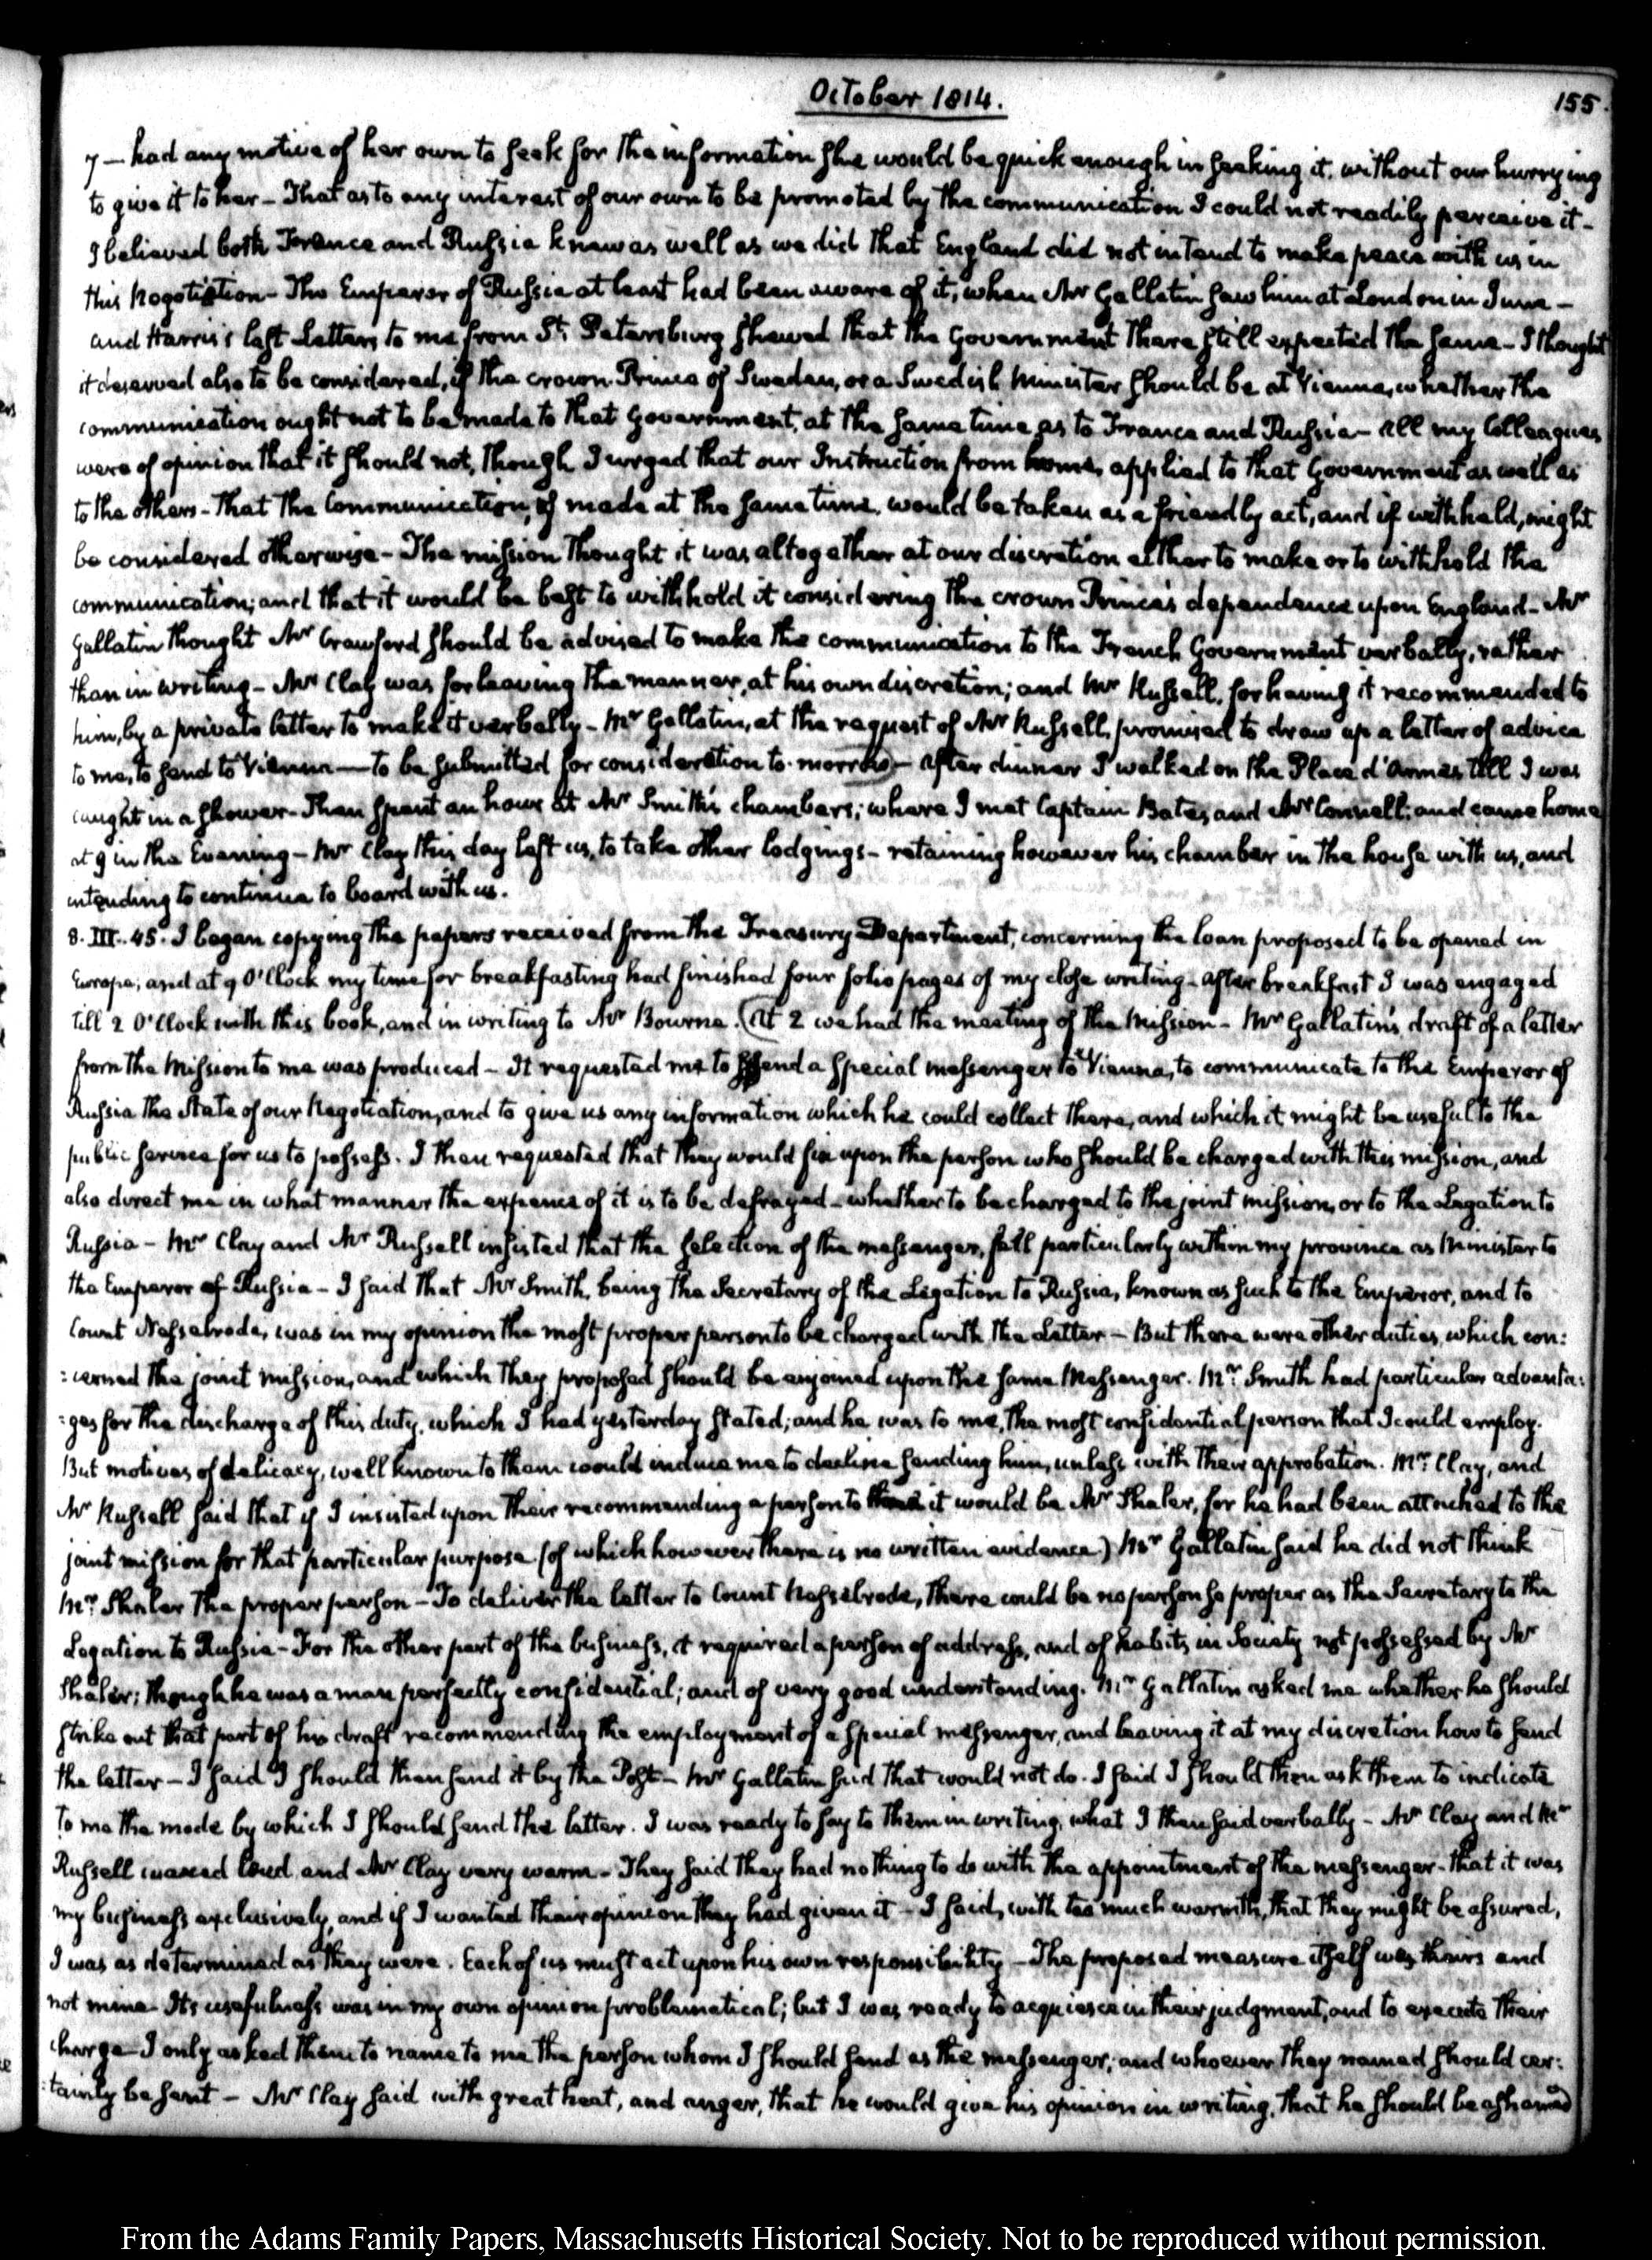 October 1814.
155.
7 — had any motive of her own to seek for the information she would be quick enough in seeking it, without our hurrying
to give it to her — That as to any interest of our own to be promoted by the communication I could not readily perceive it —
I believed both France and Russia knew as well as we did that England did not intend to make peace with us in
this Negotiation — The Emperor of Russia at least had been aware of it, when Mr Gallatin saw him at London in June —
and Harris's last Letters to me from St. Petersburg shewed that the Government there still expected the same — I thought
it deserved also to be considered, if the crown Prince of Sweden, or a Swedish Minister should be at Vienna, whether the
communication ought not to be made to that Government, at the same time as to France and Russia — all my Colleagues
were of opinion that it should not, though I urged that our Instruction from home, applied to that Government as well as
to the others — That the Communication, if made at the same time, would be taken as a friendly act, and if withheld, might
be considered otherwise — The mission thought it was altogether at our discretion either to make or to withhold the
communication; and that it would be best to withhold it considering the crown Prince's dependence upon England — Mr
Gallatin thought Mr Crawford should be advised to make the communication to the French Government verbally, rather
than in writing — Mr Clay was for leaving the manner, at his own discretion; and Mr Russell, for having it recommended to
him, by a private letter to make it verbally — Mr Gallatin, at the request of Mr Russell, promised to draw up a letter of advice
to me, to send to Vienna — to be submitted for consideration to-morrow — after dinner I walked on the Place d'Armes till I was
caught in a shower — Then spent an hour at Mr Smith's chambers; where I met Captain Bates, and Mr Connell: and came home
at 9 in the Evening — Mr Clay this day left us, to take other lodgings — retaining however his chamber in the house with us, and
intending to continue to board with us.
8. III. 45. I began copying the papers received from the Treasury Department, concerning the loan proposed to be opened in
Europe; and at 9 O'Clock my time for breakfasting had finished four folio pages of my close writing — after breakfast I was engaged
till 2 O'Clock with this book, and in writing to Mr Bourne. (At 2 we had the meeting of the Mission — Mr Gallatin's draft of a letter
from the Mission to me was produced — It requested me to send a special messenger to Vienna, to communicate to the Emperor of
Russia the State of our Negotiation, and to give us any information which he could collect there, and which it might be useful to the
public service for us to possess. I then requested that they would fix upon the person who should be charged with this mission, and
also direct me in what manner the expence of it is to be defrayed — whether to be charged to the joint mission, or to the Legation to
Russia — Mr Clay and Mr Russell insisted that the selection of the messenger, fell particularly within my province as Minister to
the Emperor of Russia — I said that Mr Smith, being the Secretary of the Legation to Russia, known as such to the Emperor, and to
Count Nesselrode, was in my opinion the most proper person to be charged with the Letter — But there were other duties, which con:
:cerned the joint mission, and which they proposed should be enjoined upon the same Messenger. Mr. Smith had particular advanta:
:ges for the discharge of this duty, which I had yesterday stated; and he was to me, the most confidential person that I could employ.
But motives of delicacy, well known to them would induce me to decline sending him, unless with their approbation. Mr. Clay, and
Mr Russell said that if I insisted upon their recommending a person to it would be Mr Shaler, for he had been attached to the
joint mission for that particular purpose (of which however there is no written evidence.) Mr Gallatin said he did not think
Mr. Shaler the proper person — To deliver the letter to Count Nesselrode, there could be no person so proper as the Secretary to the
Legation to Russia — For the other part of the business, it required a person of address, and of habits in Society not possessed by Mr
Shaler; though he was a man perfectly confidential; and of very good understanding. Mr Gallatin asked me whether he should
strike out that part of his draft recommending the employment of a special messenger, and leaving it at my discretion how to send
the letter — I said I should then send it by the Post — Mr Gallatin said that would not do. I said I should then ask them to indicate
to me the mode by which I should send the letter. I was ready to say to them in writing, what I then said verbally — Mr Clay and Mr
Russell waxed loud, and Mr Clay very warm — They said they had nothing to do with the appointment of the messenger — that it was
my business exclusively, and if I wanted their opinion they had given it — I said, with too much warmth, that they might be assured,
I was as determined as they were. Each of us must act upon his own responsibility — The proposed measure itself was theirs and
not mine — Its usefulness was in my own opinion problematical; but I was ready to acquiesce in their judgment, and to execute their
charge — I only asked them to name to me the person whom I should send as the messenger; and whoever they named should cer:
:tainly be sent — Mr Clay said with great heat, and anger, that he would give his opinion in writing, that he should be ashamed
From the Adams Family Papers, Massachusetts Historical Society. Not to be reproduced without permission.